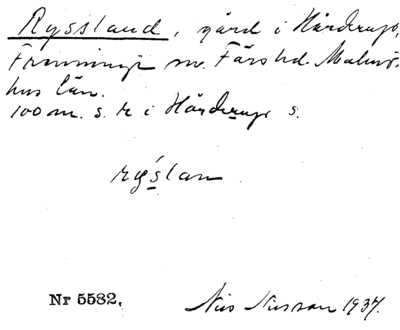 Ryssland, gård i Hårderup,
Frenninge sn. Färs hd. Malmö-
hus län.
100 m. s. k i Hårderup s.
rýslan
Nr 5582.
Nils Nilsson 1937.